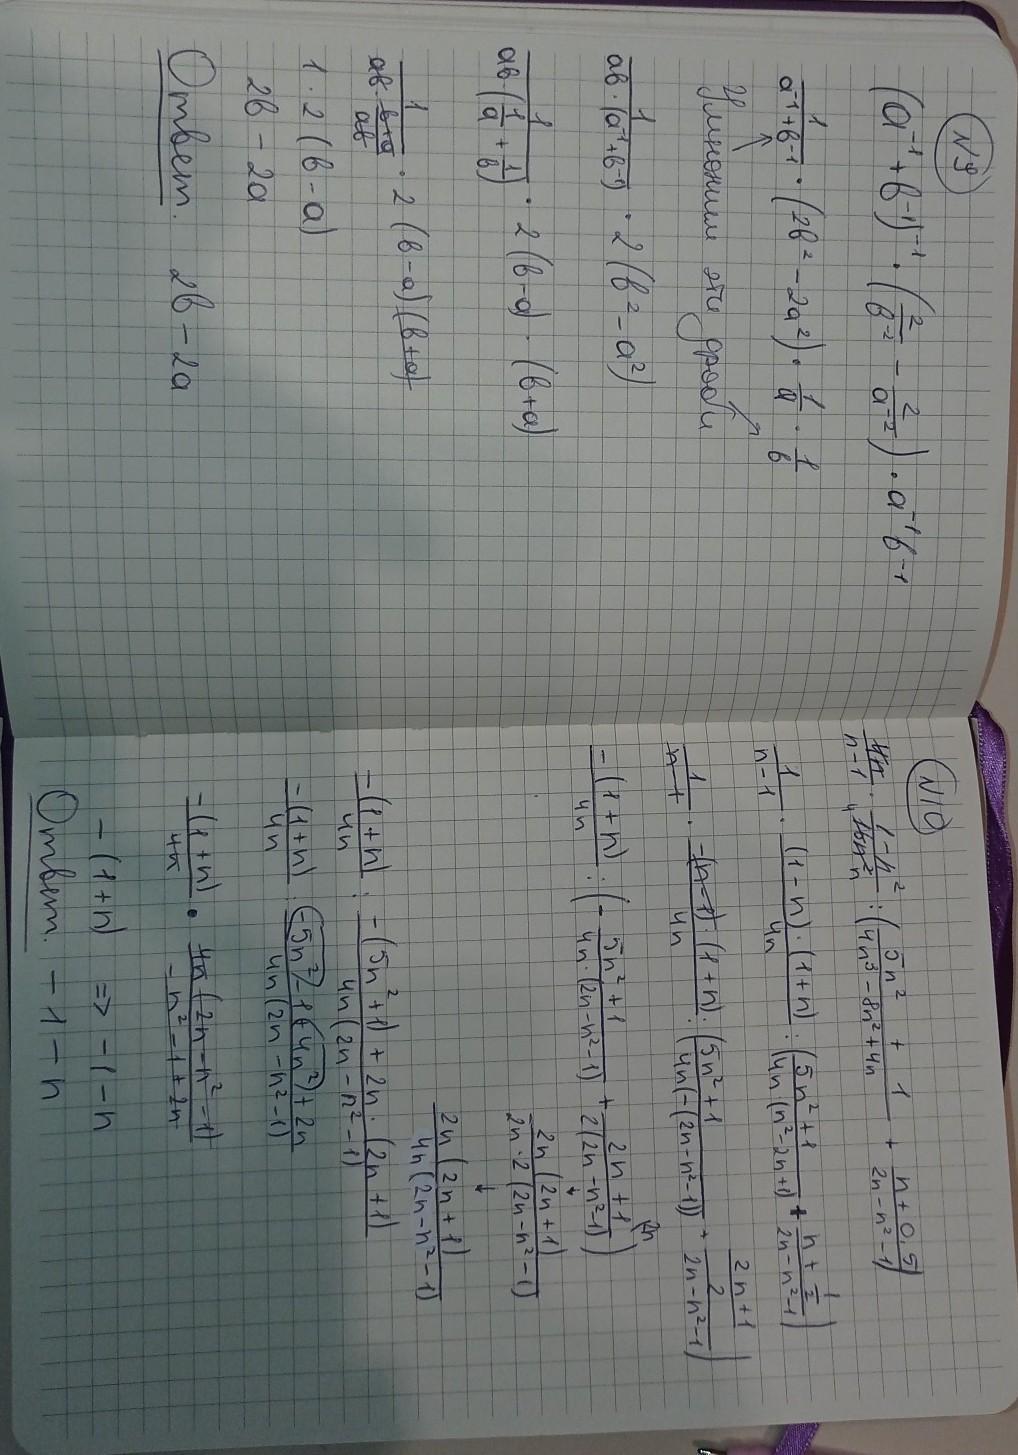 N9
(a⁻¹ + b⁻¹)⁻¹ · (2/b⁻² − 2/a⁻²) · a⁻¹b⁻¹
1/(a⁻¹ + b⁻¹) · (2b² − 2a²) · 1/a · 1/b
Умножим эти дроби
1/(ab · (a⁻¹ + b⁻¹)) · 2(b² − a²)
1/(ab(1/a + 1/b)) · 2(b − a) · (b + a)
1/(ab · (b+a)/(ab)) · 2(b − a)(b + a)
1 · 2(b − a)
2b − 2a
Ответ. 2b − 2a
N10
4n/(n − 1) · (1 − n²)/(16n²) : ((5n² + 1)/(4n³ − 8n² + 4n) + (n + 0,5)/(2n − n² − 1))
1/(n − 1) · ((1 − n) · (1 + n))/(4n) : ((5n² + 1)/(4n · (n² − 2n + 1)) + (n + 1/2)/(2n − n² − 1))
1/(n − 1) · (−(n − 1) · (1 + n))/(4n) : ((5n² + 1)/(4n(−(2n − n² − 1))) + ((2n + 1)/2)/(2n − n² − 1))
−(1 + n)/(4n) : (− (5n² + 1)/(4n · (2n − n² − 1)) + (2n + 1)/(2(2n − n² − 1))) (2n
2n(2n + 1)/(2n · 2(2n − n² − 1))
2n(2n + 1)/(4n(2n − n² − 1))
−(1 + n)/(4n) : (−(5n² + 1) + 2n · (2n + 1))/(4n(2n − n² − 1))
−(1 + n)/(4n) : (−5n² − 1 + 4n² + 2n)/(4n(2n − n² − 1))
−(1 + n)/(4n) · (4n(2n − n² − 1))/(−n² − 1 + 2n)
−(1 + n) ⇒ −1 − n
Ответ. −1 − n